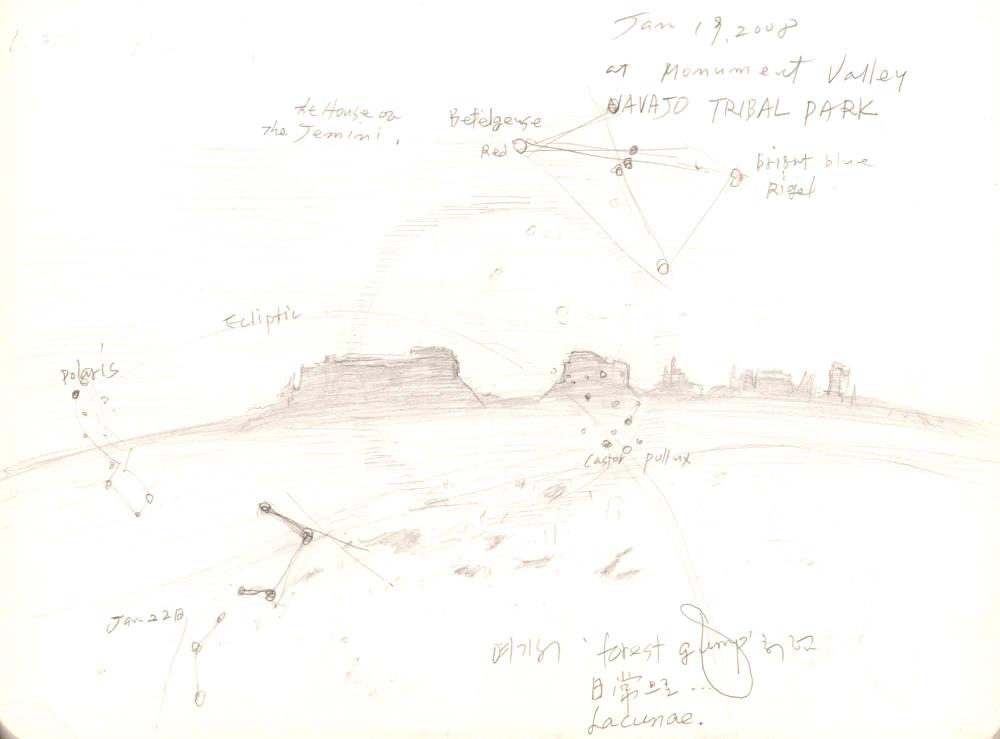 Jan 19, 2008
at Monument Valley
NAVAJO TRIBAL PARK
The House on
The Jemini,
Betelgeuse
Red
bright blue
Rigel
Ecliptic
Polaris
Castor pullux
Jan 22日
여기서 'forest gump'
日常으로...
Lacunae.